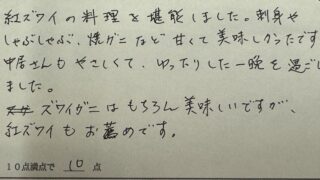 紅ズワイの料理を堪能しました。刺身や
しゃぶしゃぶ、焼ガニなど甘くて美味しかったです
中居さんもやさしくて、ゆったりした一晩を過ごし
ました。
ズワイガニはもちろん美味しいですが、
紅ズワイもお薦めです。
10点満点で 10 点